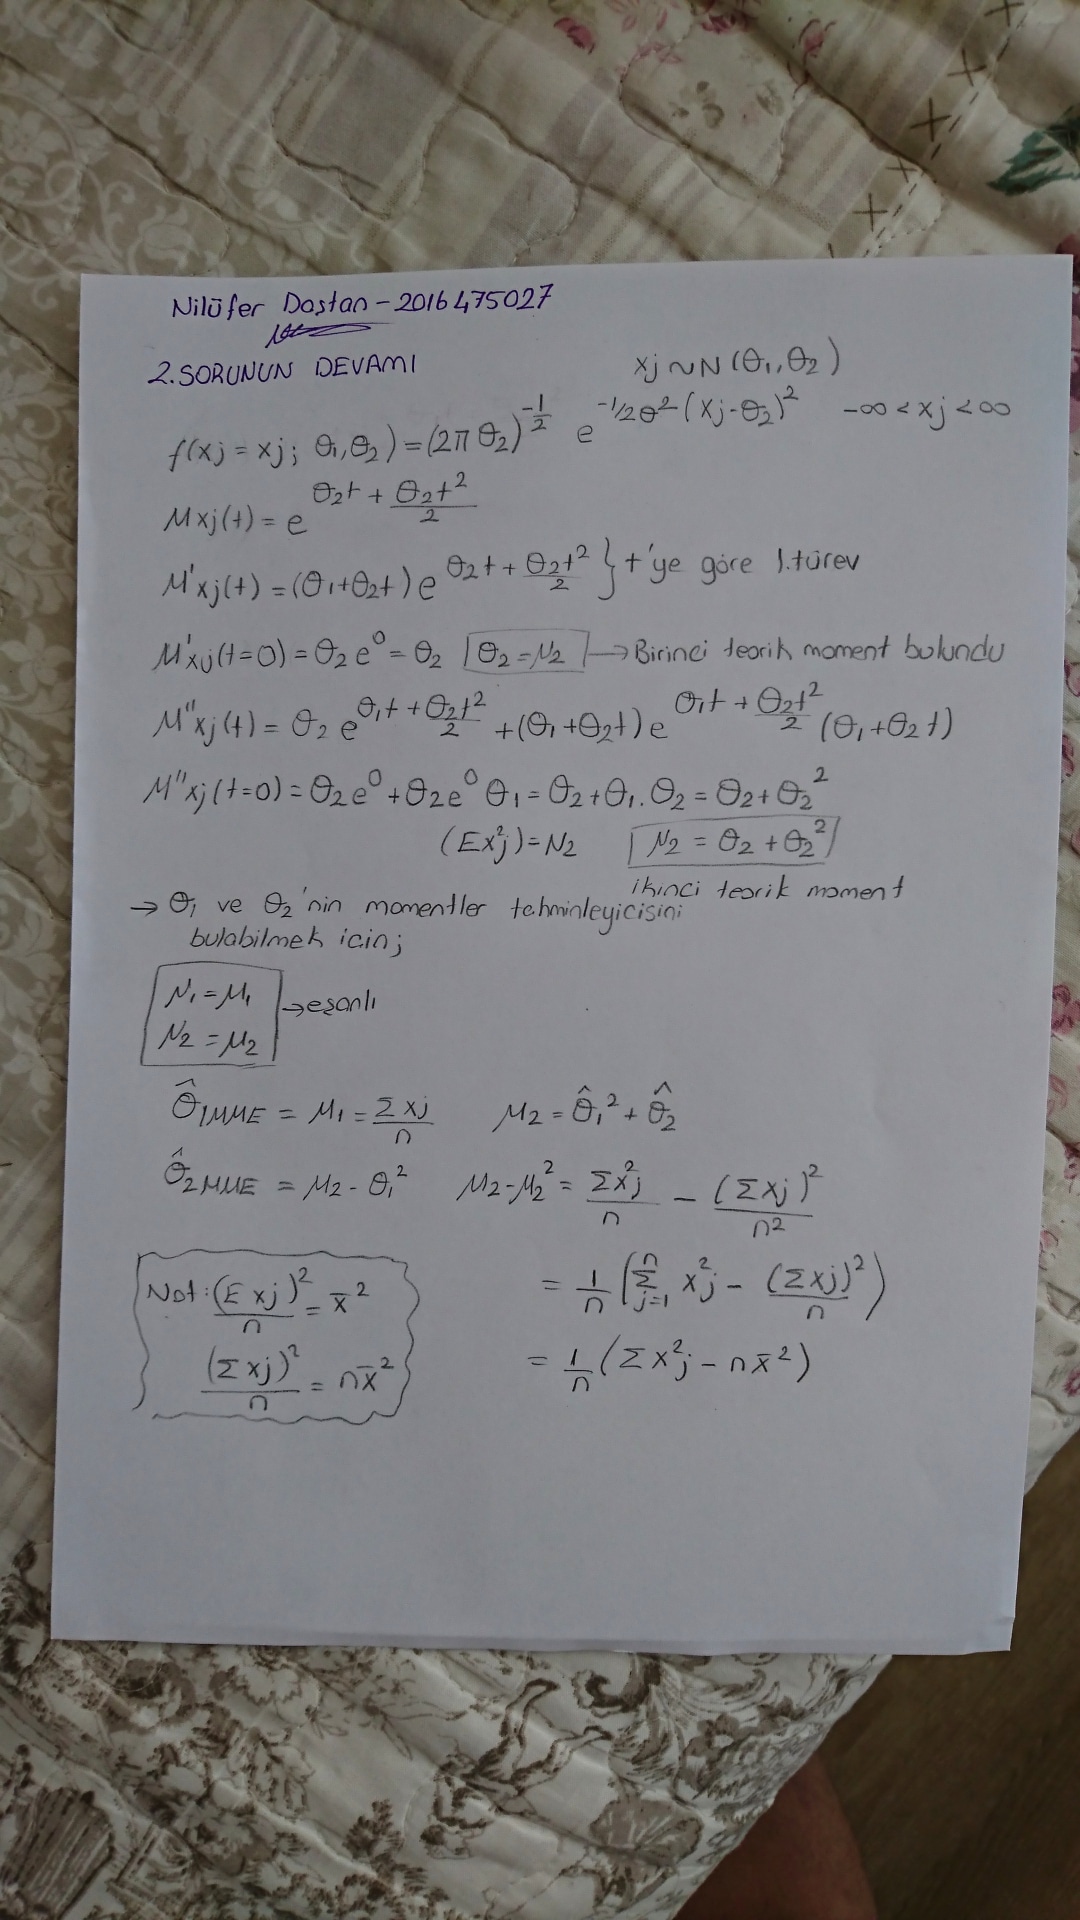 Nilüfer Dastan - 2016475027
2. SORUNUN DEVAMI
xj ~ N (θ₁, θ₂)
f(xj = xj; θ₁, θ₂) = (2π θ₂)^(-1/2) e^(-1/2θ² (xj-θ₂)²) -∞ < xj < ∞
Mxj(t) = e^(θ₂t + θ₂t²/2)
M'xj(t) = (θ₁+θ₂t) e^(θ₂t + θ₂t²/2) } t'ye göre 1.türev
M'xj(t=0) = θ₂e⁰ = θ₂ θ₂ = μ₂ → Birinci teorik moment bulundu
M''xj(t) = θ₂ e^(θ₁t + θ₂t²/2) + (θ₁+θ₂t) e^(θ₁t + θ₂t²/2) (θ₁+θ₂t)
M''xj(t=0) = θ₂e⁰ + θ₂e⁰ θ₁ = θ₂ + θ₁.θ₂ = θ₂ + θ₂²
(Ex²j) = μ₂ μ₂ = θ₂ + θ₂²
ikinci teorik moment
→ θ₁ ve θ₂'nin momentler tehminleyicisini
bulabilmek icin;
μ₁ = M₁
μ₂ = M₂ → eşanlı
θ̂₁MME = M₁ = Σxj/n M₂ = θ̂₁² + θ̂₂
θ̂₂MME = M₂ - θ₁² M₂-M₂² = Σx²j/n - (Σxj)²/n²
Not: (E xj)²/n = x̄² = 1/n (Σ_(j=1)^n x²j - (Σxj)²/n)
(Σxj)²/n = nx̄² = 1/n (Σx²j - nx̄²)